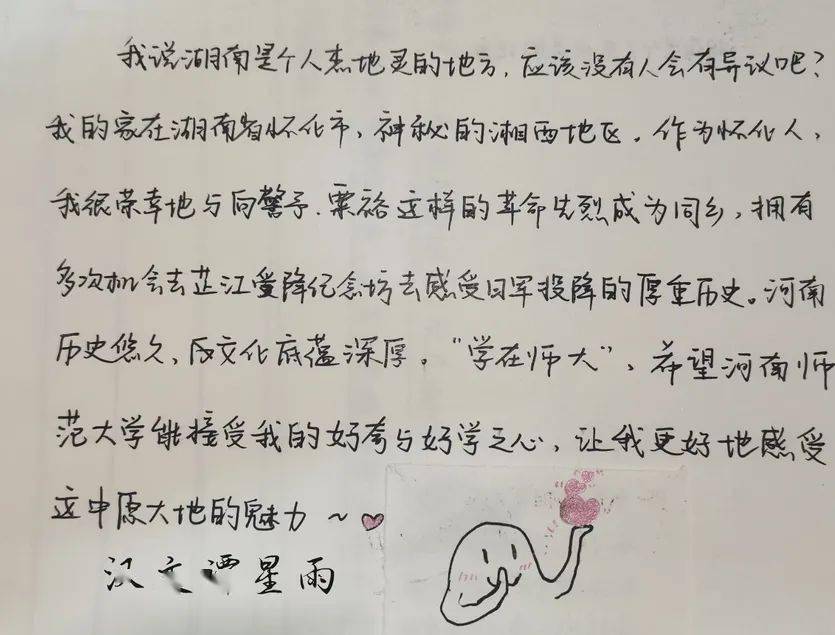 我说湖南是个人杰地灵的地方，应该没有人会有异议吧？
我的家在湖南省怀化市，神秘的湘西地区。作为怀化人，
我很荣幸地与向警予、粟裕这样的革命先烈成为同乡，拥有
多次机会去芷江受降纪念坊去感受日军投降的厚重历史。河南
历史悠久，文化底蕴深厚。“学在师大”，希望河南师
范大学能接受我的好奇与好学之心，让我更好地感受
这中原大地的魅力～
汉文谭星雨